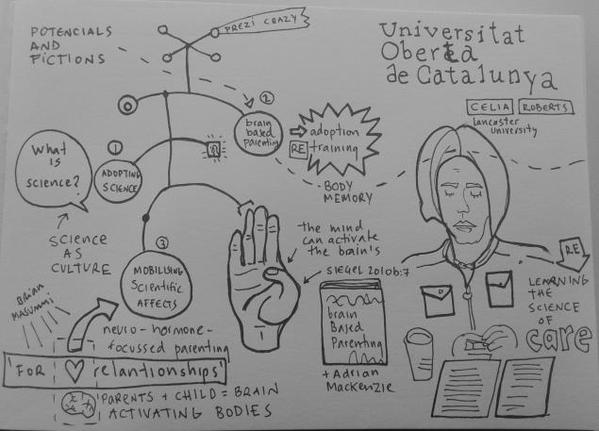 POTENCIALS
AND
FICTIONS
PREZI CRAZY
Universitat
Oberta
de Catalunya
CELIA ROBERTS
Lancaster
University
2
brain
based
parenting
adoption
RE training
BODY
MEMORY
What
is
science?
1
ADOPTING
SCIENCE
SCIENCE
AS
CULTURE
3
MOBILISING
Scientific
AFFECTS
the mind
can activate
the brain's
SIEGEL 2010b:7
brain
Based
Parenting
+ Adrian
Mackenzie
RE
LEARNING
THE
SCIENCE
OF
care
Brian
Masummi
neuro-hormone-
focussed parenting
'FOR relantionships'
PARENTS + CHILD = BRAIN
ACTIVATING BODIES